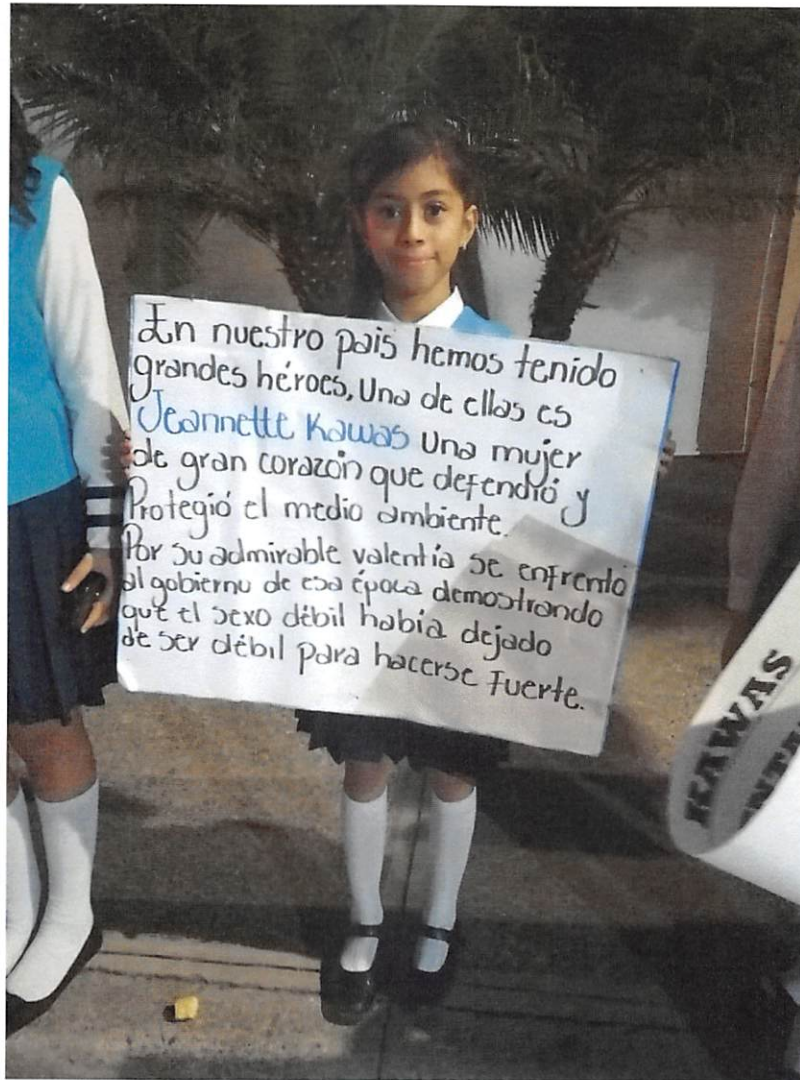 En nuestro pais hemos tenido
grandes héroes, Una de ellas es
Jeannette Kawas Una mujer
de gran corazón que defendió y
Protegió el medio ambiente.
Por su admirable valentía se enfrentó
al gobierno de esa época demostrando
que el sexo débil había dejado
de ser débil para hacerse Fuerte.
KAWAS